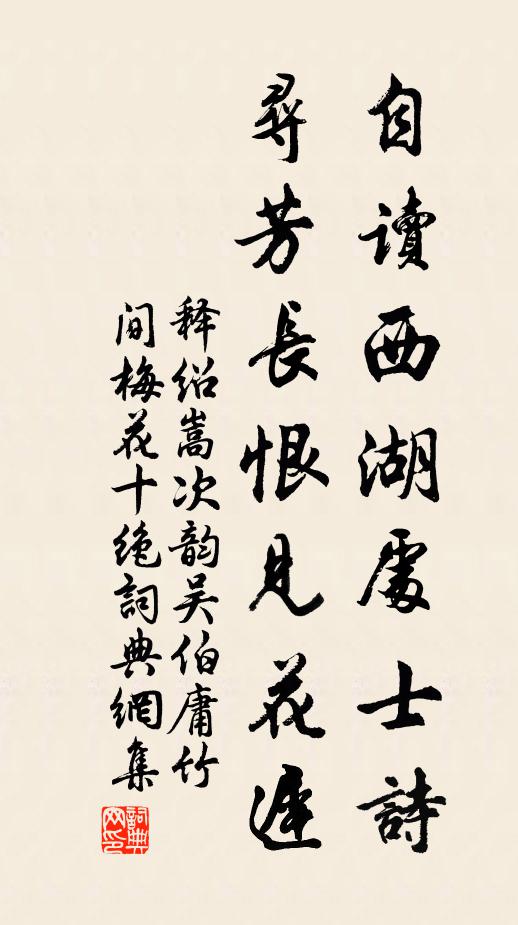 自讀西湖處士詩
尋芳長恨見花遲
释绍嵩次韵吴伯庸竹
间梅花十绝詞典網集
詞典
网印